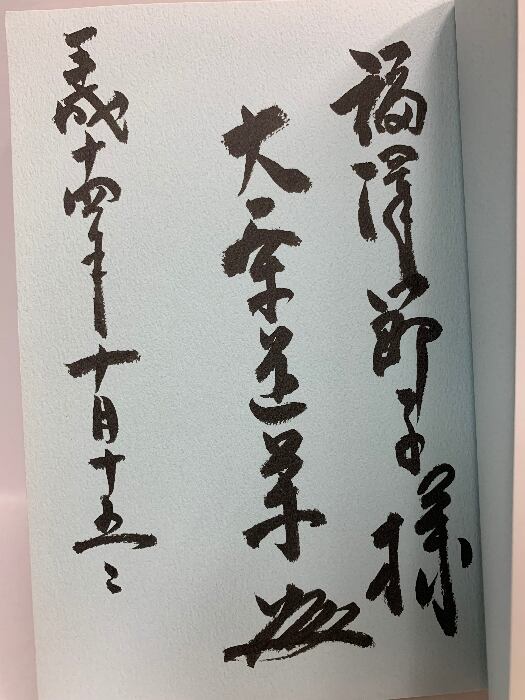 福澤節子様
大栗道栄
平成十四年十月十五日